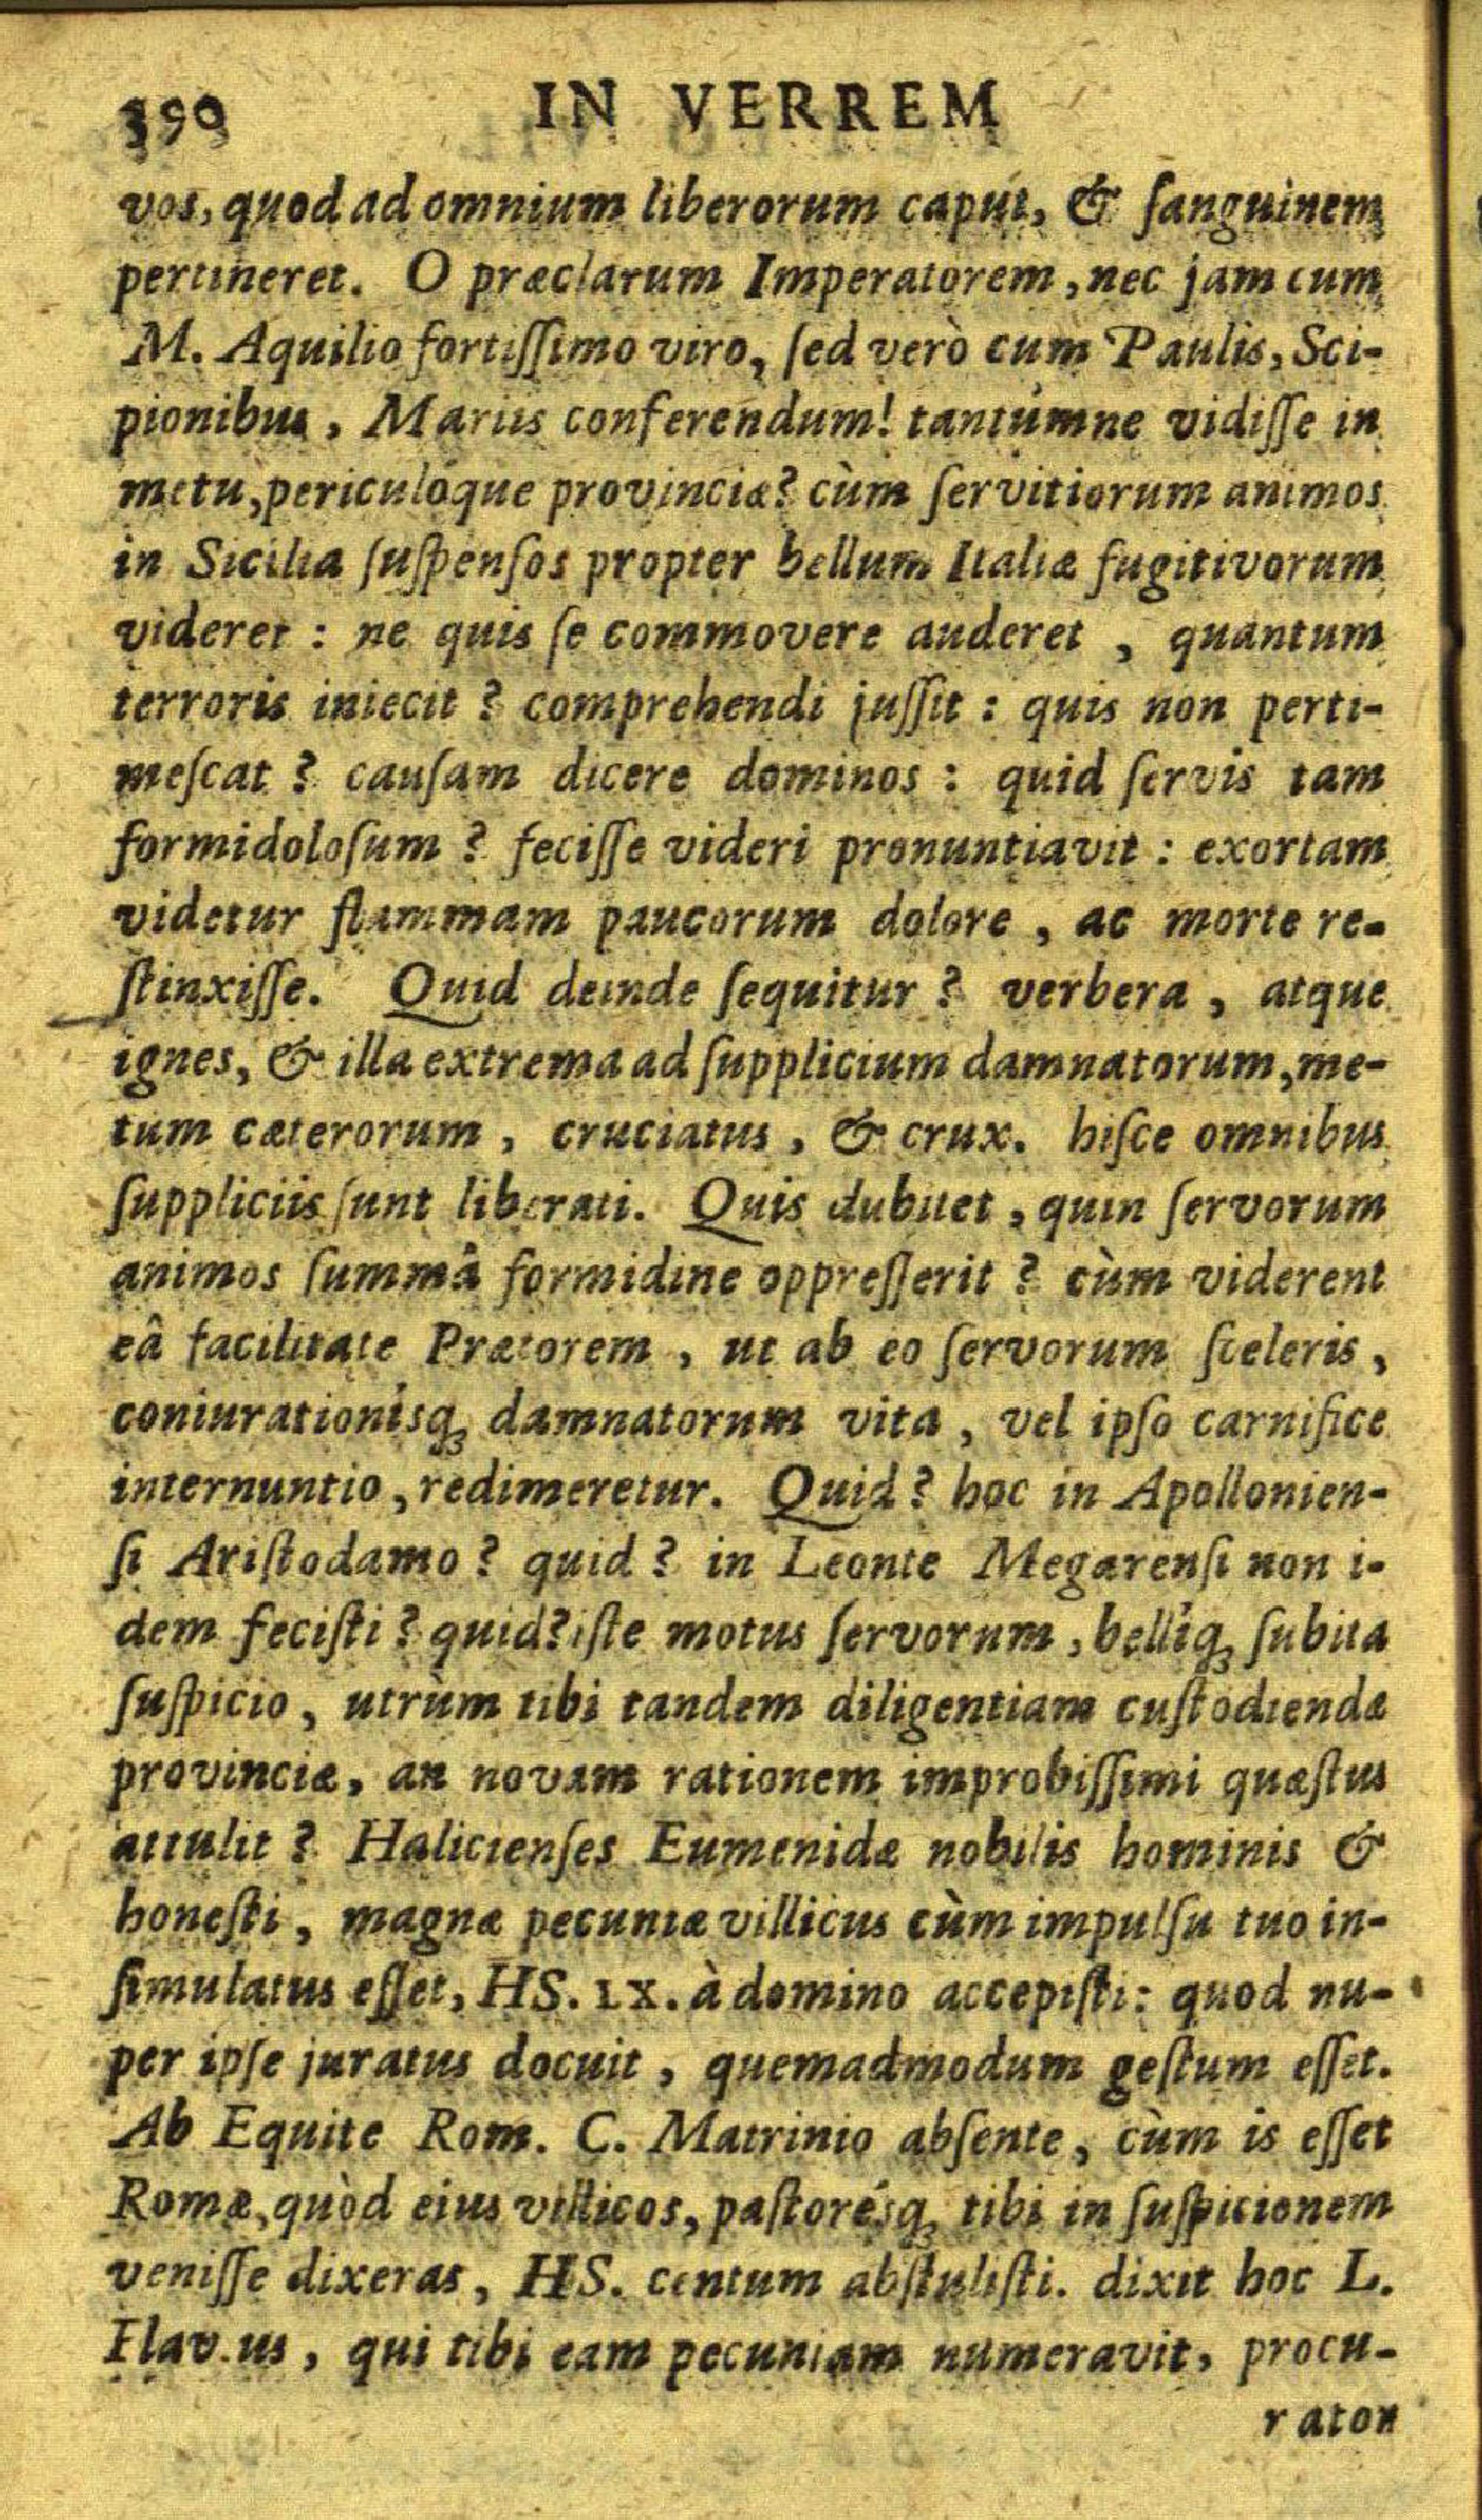 390 IN VERREM
vos, quod ad omnium liberorum caput, & ſanguinem
pertineret. O præclarum Imperatorem, nec jam cum
M. Aquilio fortiſſimo viro, ſed verò cum Paulis, Sci-
pionibus, Mariis conferendum! tantúmne vidiſſe in
metu, periculóque provinciæ? cùm ſervitiorum animos
in Sicilia ſuſpenſos propter bellum Italiæ fugitivorum
videret : ne quis ſe commovere auderet , quantum
terroris iniecit ? comprehendi juſſit : quis non perti-
meſcat ? cauſam dicere dominos : quid ſervis tam
formidoloſum ? feciſſe videri pronuntiavit : exortam
videtur flammam paucorum dolore , ac morte re-
ſtinxiſſe. Quid deinde ſequitur ? verbera , atque
ignes, & illa extrema ad ſupplicium damnatorum, me-
tum cæterorum , cruciatus , & crux. hiſce omnibus
ſuppliciis ſunt liberati. Quis dubitet , quin ſervorum
animos ſummâ formidine oppreſſerit ? cùm viderent
eâ facilitate Prætorem , ut ab eo ſervorum ſceleris ,
coniurationísq; damnatorum vita , vel ipſo carnifice
internuntio , redimeretur. Quid ? hoc in Apollonien-
ſi Ariſtodamo ? quid ? in Leonte Megarenſi non i-
dem feciſti ? quid? iſte motus ſervorum , bellíq; ſubita
ſuſpicio , utrùm tibi tandem diligentiam cuſtodiendæ
provinciæ, an novam rationem improbiſſimi quæſtus
attulit ? Halicienſes Eumenidæ nobilis hominis &
honeſti , magnæ pecuniæ villicus cùm impulſu tuo in-
ſimulatus eſſet, HS. LX. à domino accepiſti: quod nu-
per ipſe juratus docuit , quemadmodum geſtum eſſet.
Ab Equite Rom. C. Matrinio abſente, cùm is eſſet
Romæ, quòd eius villicos, paſtorésq; tibi in ſuſpicionem
veniſſe dixeras, HS. centum abſtuliſti. dixit hoc L.
Flavius , qui tibi eam pecuniam numeravit, procu-
rator